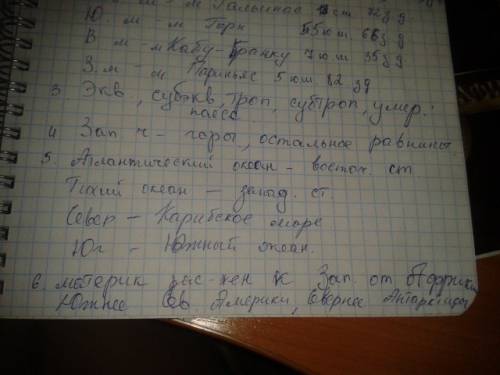 м Гальинас 12 ст 72 з д
Ю. м м Горн 55 ю ш. 68 з д
В м - м Кабу-Бранку 7 ю ш 35 з д
З. м - м Париньяс 5 ю ш. 82 з д
3 Экв, субэкв, троп, субтроп, умер.
пасс.
4 Зап ч - горы, остальное равнины.
5. Атлантический океан - восточ. ст
Тихий океан - запад. ст.
Север - Карибское море
Юг - Южный океан.
6 материк рас-жен к Зап. от Африки
Южнее Сев Америки, Севернее Антарктиды